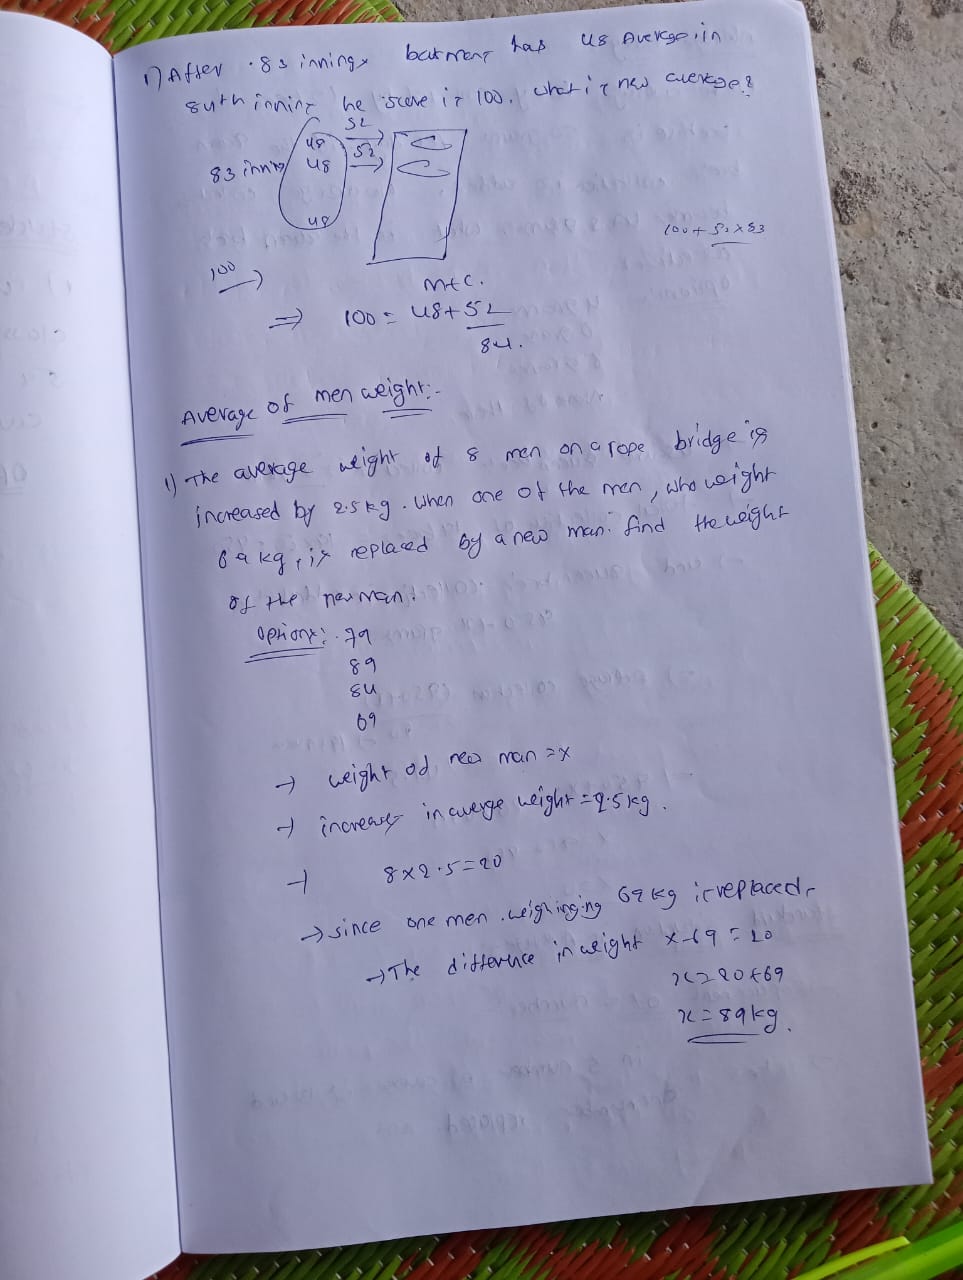 1) After 83 innings batment has 48 Average, in
84th inning he score is 100. what is new average?
52
48 52
83 inning 48
48
100 + 52 x 83
100
M+C.
=> 100 = 48 + 52
84.
Average of men weight:-
1) The average weight of 8 men on a rope bridge is
increased by 2.5 kg. when one of the men, who weight
69 kg, is replaced by a new man. find the weight
of the new man.
options: 79
89
84
69
→ weight od new man = x
→ increases in averge weight = 2.5 kg.
→ 8 x 2.5 = 20
→ since one men weighinging 69 kg is replaced,
→ The difference in weight x - 69 = 20
x = 20 + 69
x = 89 kg.